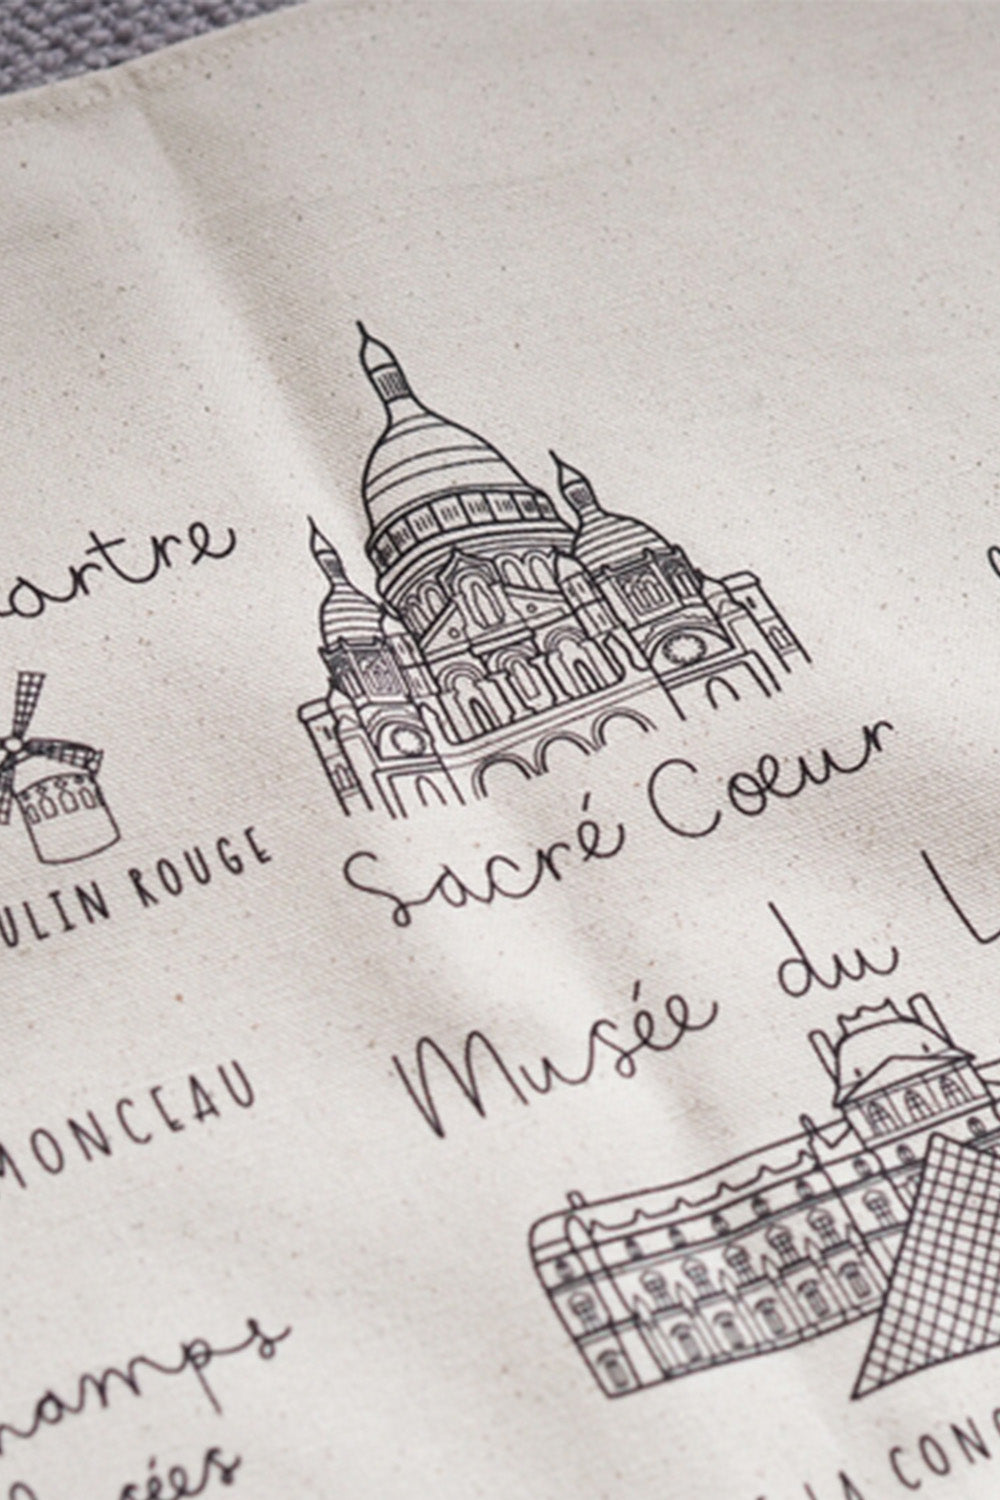 artre
ULIN ROUGE
Sacré Cœur
Musée du L
MONCEAU
hamps
ées
LA CONC